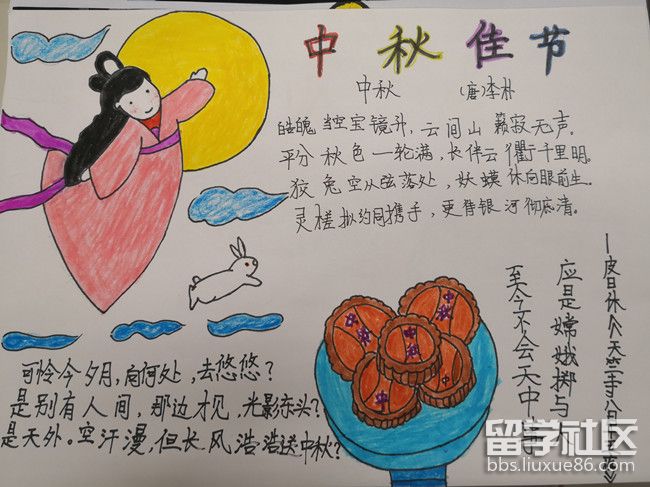 中秋佳节
中秋 (唐)李朴
皓魄当空宝镜升，云间山籁寂无声。
平分秋色一轮满，长伴云衢千里明。
狡兔空从弦落处，妖蟆休向眼前生。
灵槎拟约同携手，更待银河彻底清。
至今不会天中事
应是嫦娥掷与人
—皮日休《天竺寺八月
可怜今夕月，向何处，去悠悠？
是别有人间，那边才见，光影东头？
是天外。空汗漫，但长风浩浩送中秋？
中秋
中秋
中秋
中秋
中
留学社区
bbs.liuxue86.com